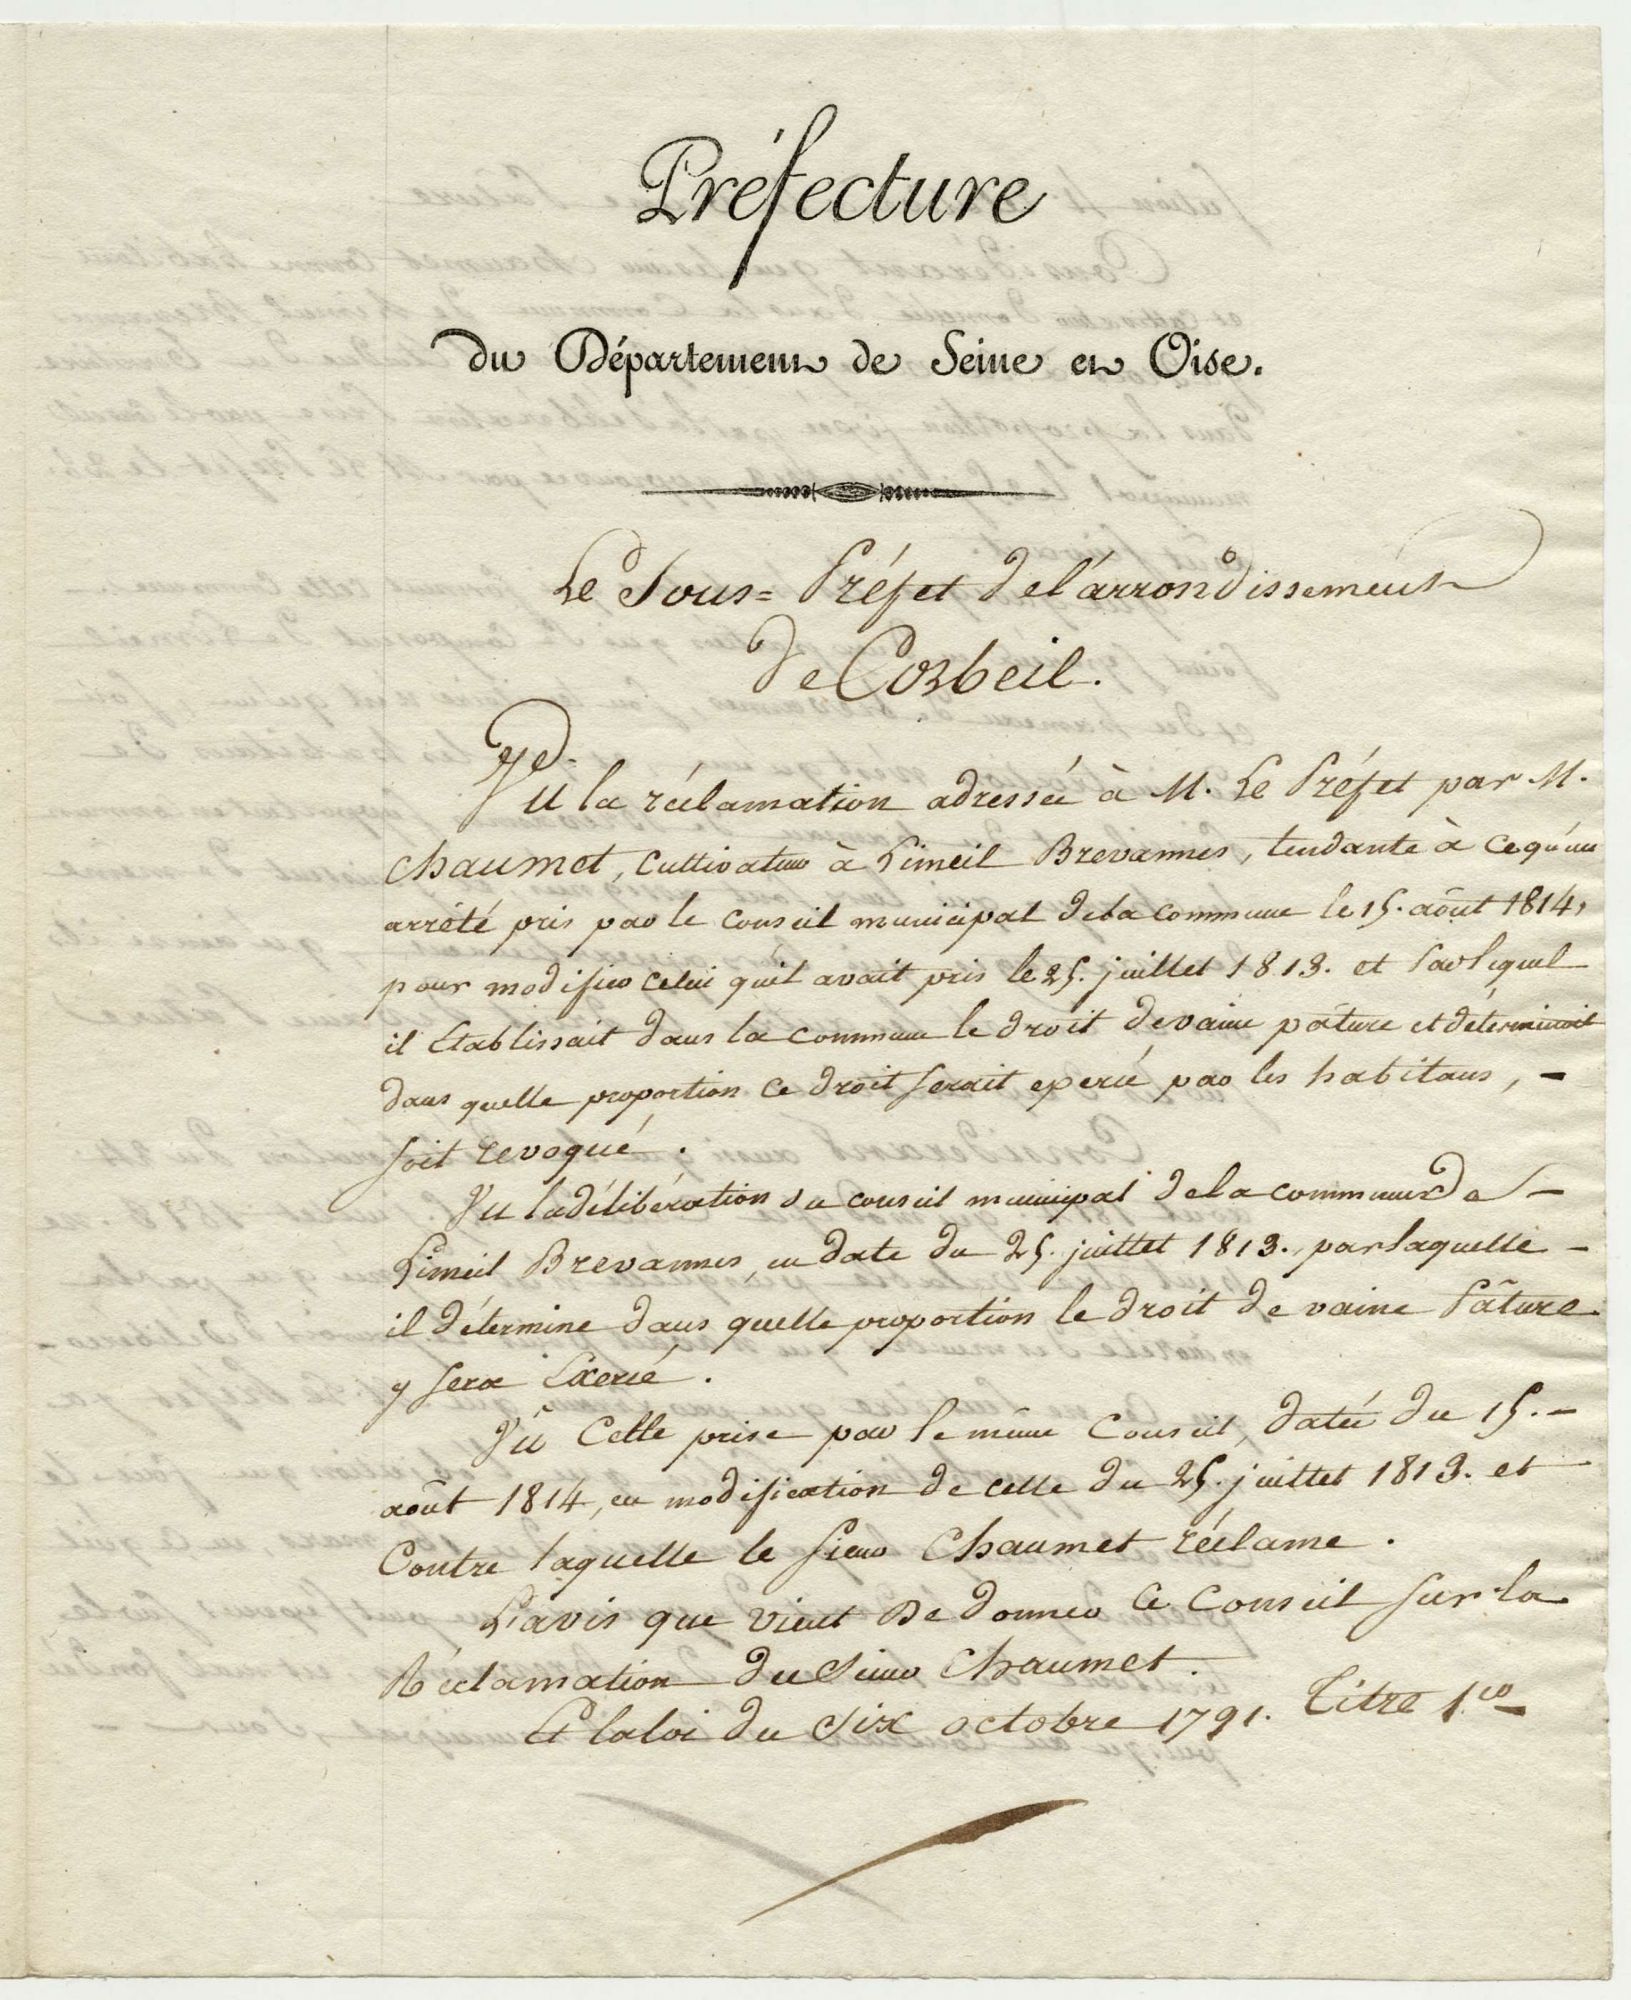 Préfecture
du Département de Seine et Oise.
Le Sous=Préfet de l'arrondissement
de Corbeil.
Vu la réclamation adressée à M. Le Préfet par M.
Chaumet, Cultivateur à Limeil Brevannes, tendante à ce qu'un
arrêté pris par le Conseil municipal de la commune le 15. août 1814,
pour modifier celui qu'il avait pris le 25. juillet 1813. et par lequel
il Etablissait dans la commune le droit de vaine pâture et déterminait
dans quelle proportion ce droit serait exercé par les habitans, -
soit revoqué.
Vu la délibération du conseil municipal de la commune de -
Limeil Brevannes, en date du 25. juillet 1813. par laquelle -
il détermine dans quelle proportion le droit de vaine Pâture
y sera Exercé.
Vû Celle prise par le même Conseil, datée du 15. -
août 1814, en modification de celle du 25. juillet 1813. et
Contre laquelle le Sieur Chaumet réclame.
L'avis que vient De donner ce Conseil sur la
Réclamation du Sieur Chaumet.
Et la loi du Six octobre 1791. Titre 1.er